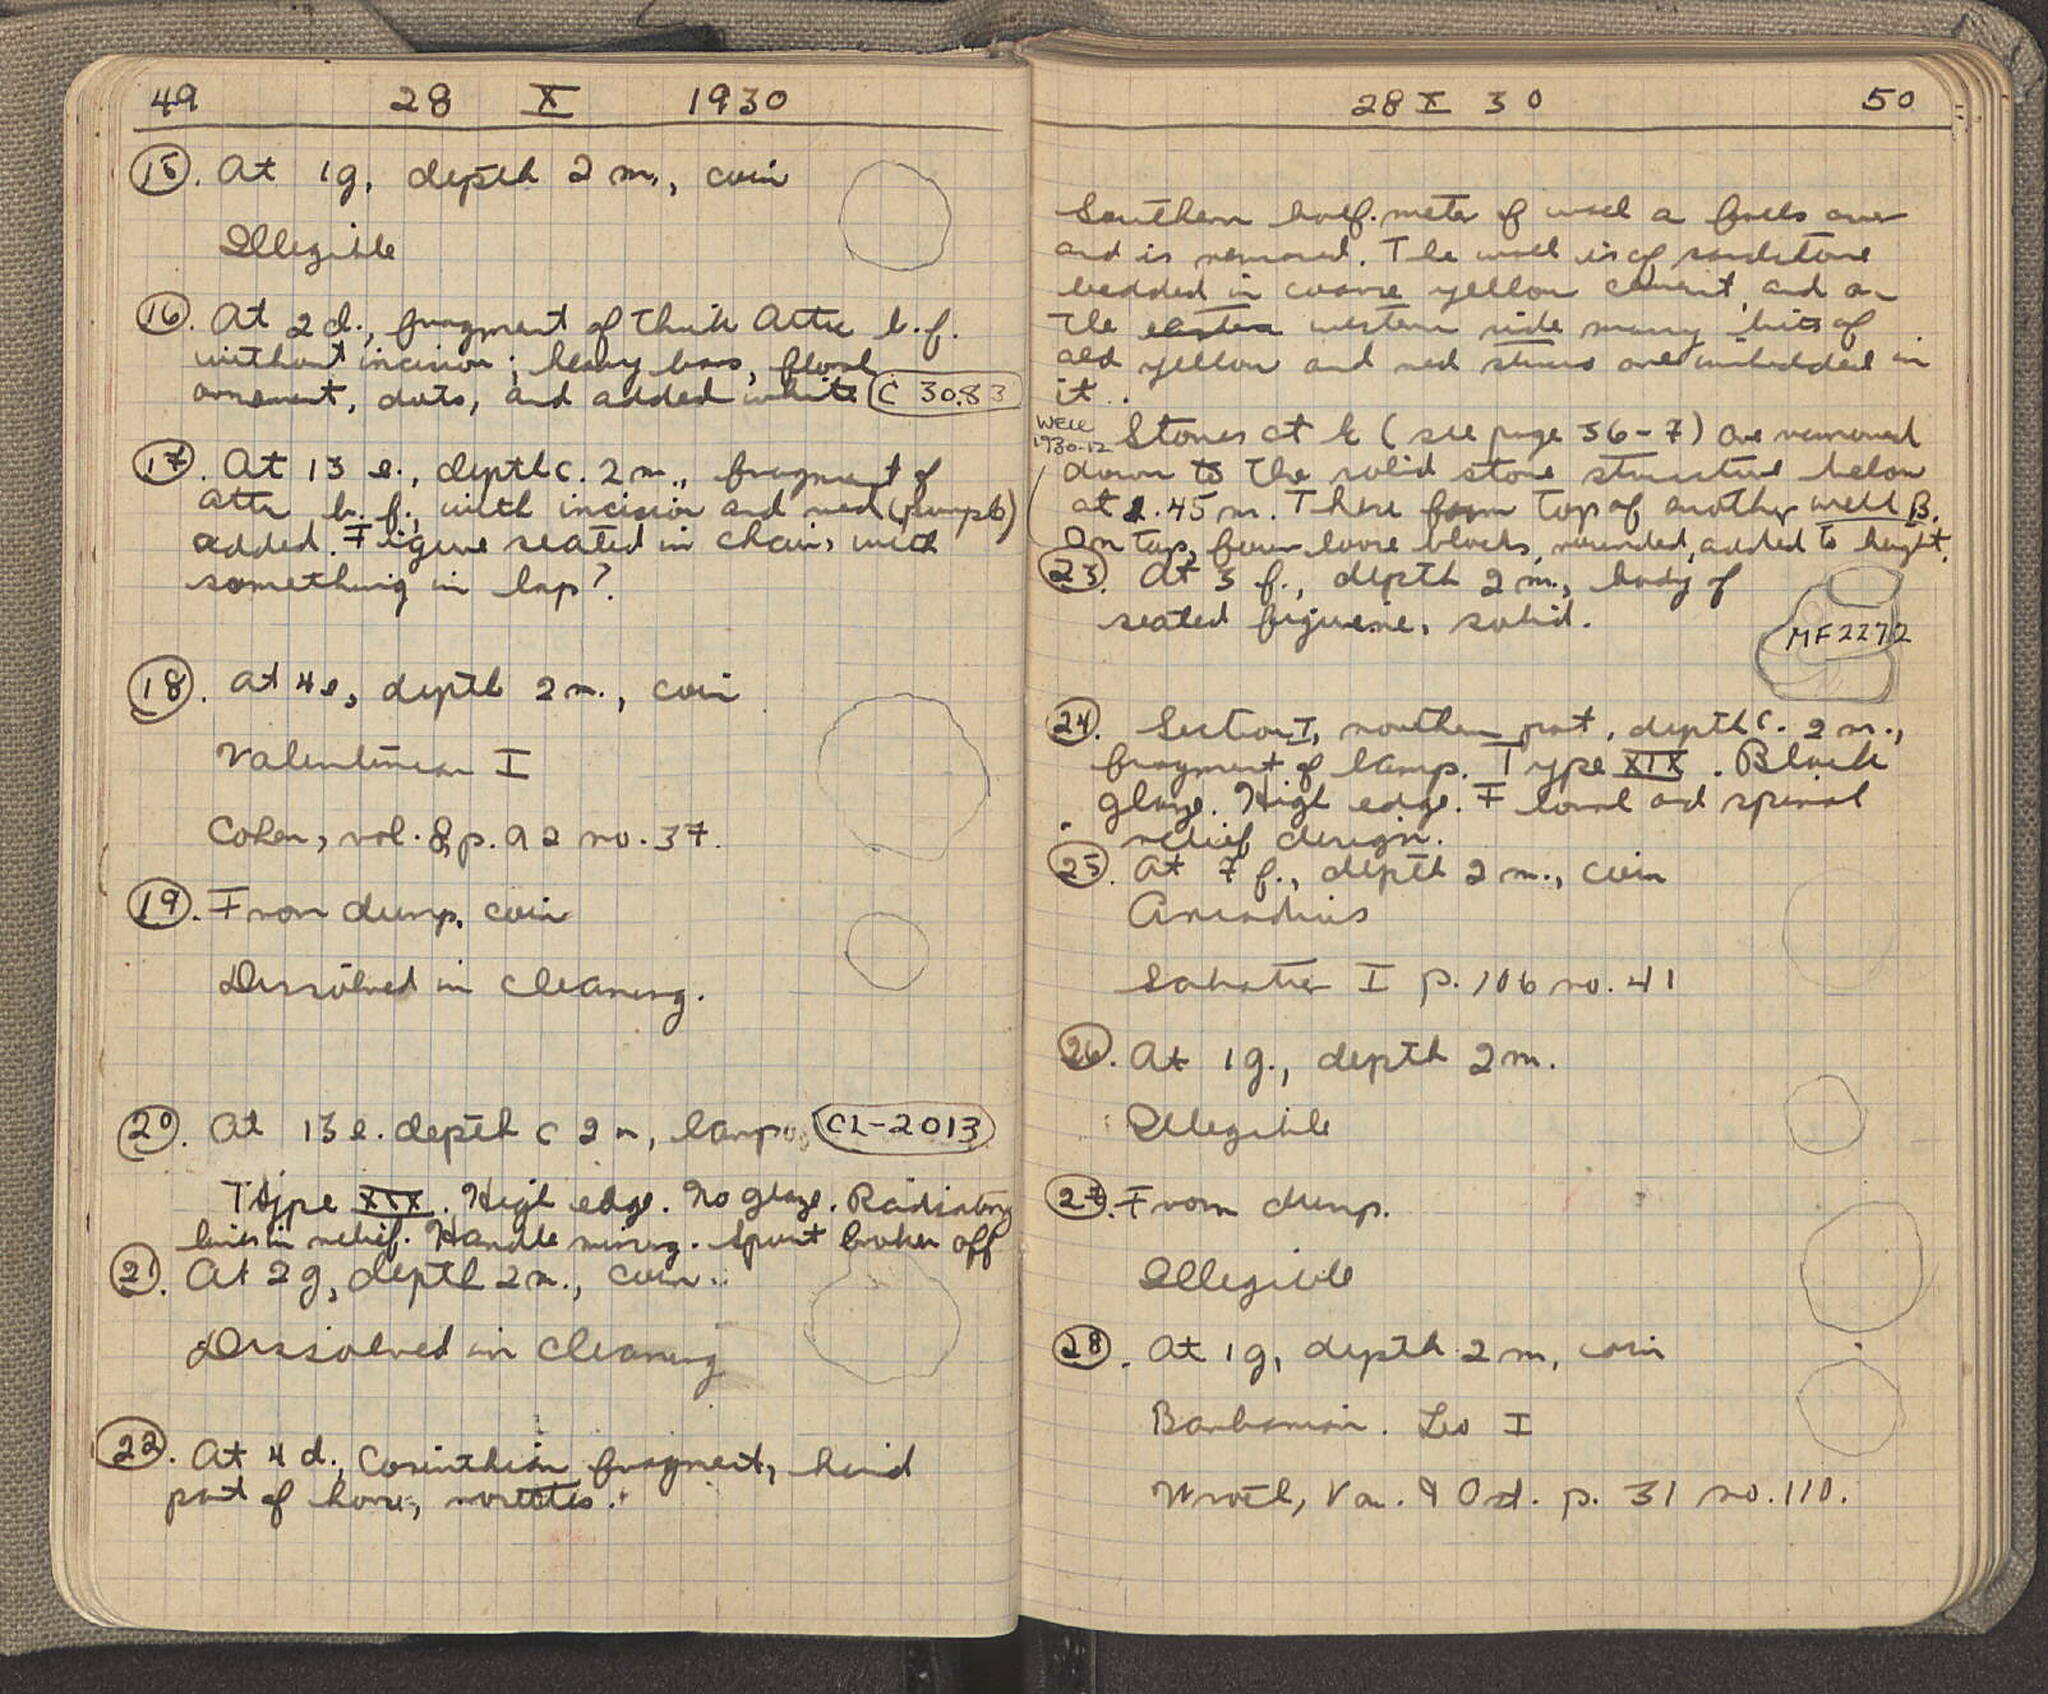 49 28 X 1930
15. At 1g, depth 2 m., coin
Illegible
16. At 2d., fragment of thick Attic b.f.
without incision; heavy bars, floral
ornament, dots, and added white C 30.83
17. At 13 e., depth c. 2 m., fragment of
Attic b.f., with incision and red (purple)
added. Figure seated in chair, with
something in lap?
18. At 4e, depth 2 m., coin
Valentinian I
Cohen, vol. 8, p. 92 no. 37.
19. From dump, coin
Dissolved in cleaning.
20. At 13 e. depth c 2 m, lamp CL-2013
Type XIX. High edge. No glaze. Radiating
lines in relief. Handle missing. Spout broken off
21. At 2g, depth 2 m., coin.
Dissolved in cleaning
22. At 4 d., Corinthian fragment, hind
part of horse, rosettes.
28 X 30 50
Southern half-meter of wall a falls over
and is removed. The wall is of sandstone
bedded in coarse yellow cement, and on
the eastern western side many bits of
old yellow and red stucco are imbedded in
it.
WELL
1930-12
Stones at k (see page 36-7) are removed
down to the solid stone structure below
at 2.45 m. These form top of another well β.
On top, four loose blocks, rounded, added to height.
23. At 3 f., depth 2 m., body of
seated figurine, solid.
MF2272
24. Section I, northern part, depth c. 2 m.,
fragment of lamp. Type XIX. Black
glaze. High edge. Floral and spiral
relief design.
25. At 7 f., depth 2 m., coin
Arcadius
Sabatier I p. 106 no. 41
26. At 1g., depth 2 m.
Illegible
27. From dump.
Illegible
28. At 1g, depth 2 m, coin
Barbarian. Leo I
Wroth, Van. & Ost. p. 31 no. 110.